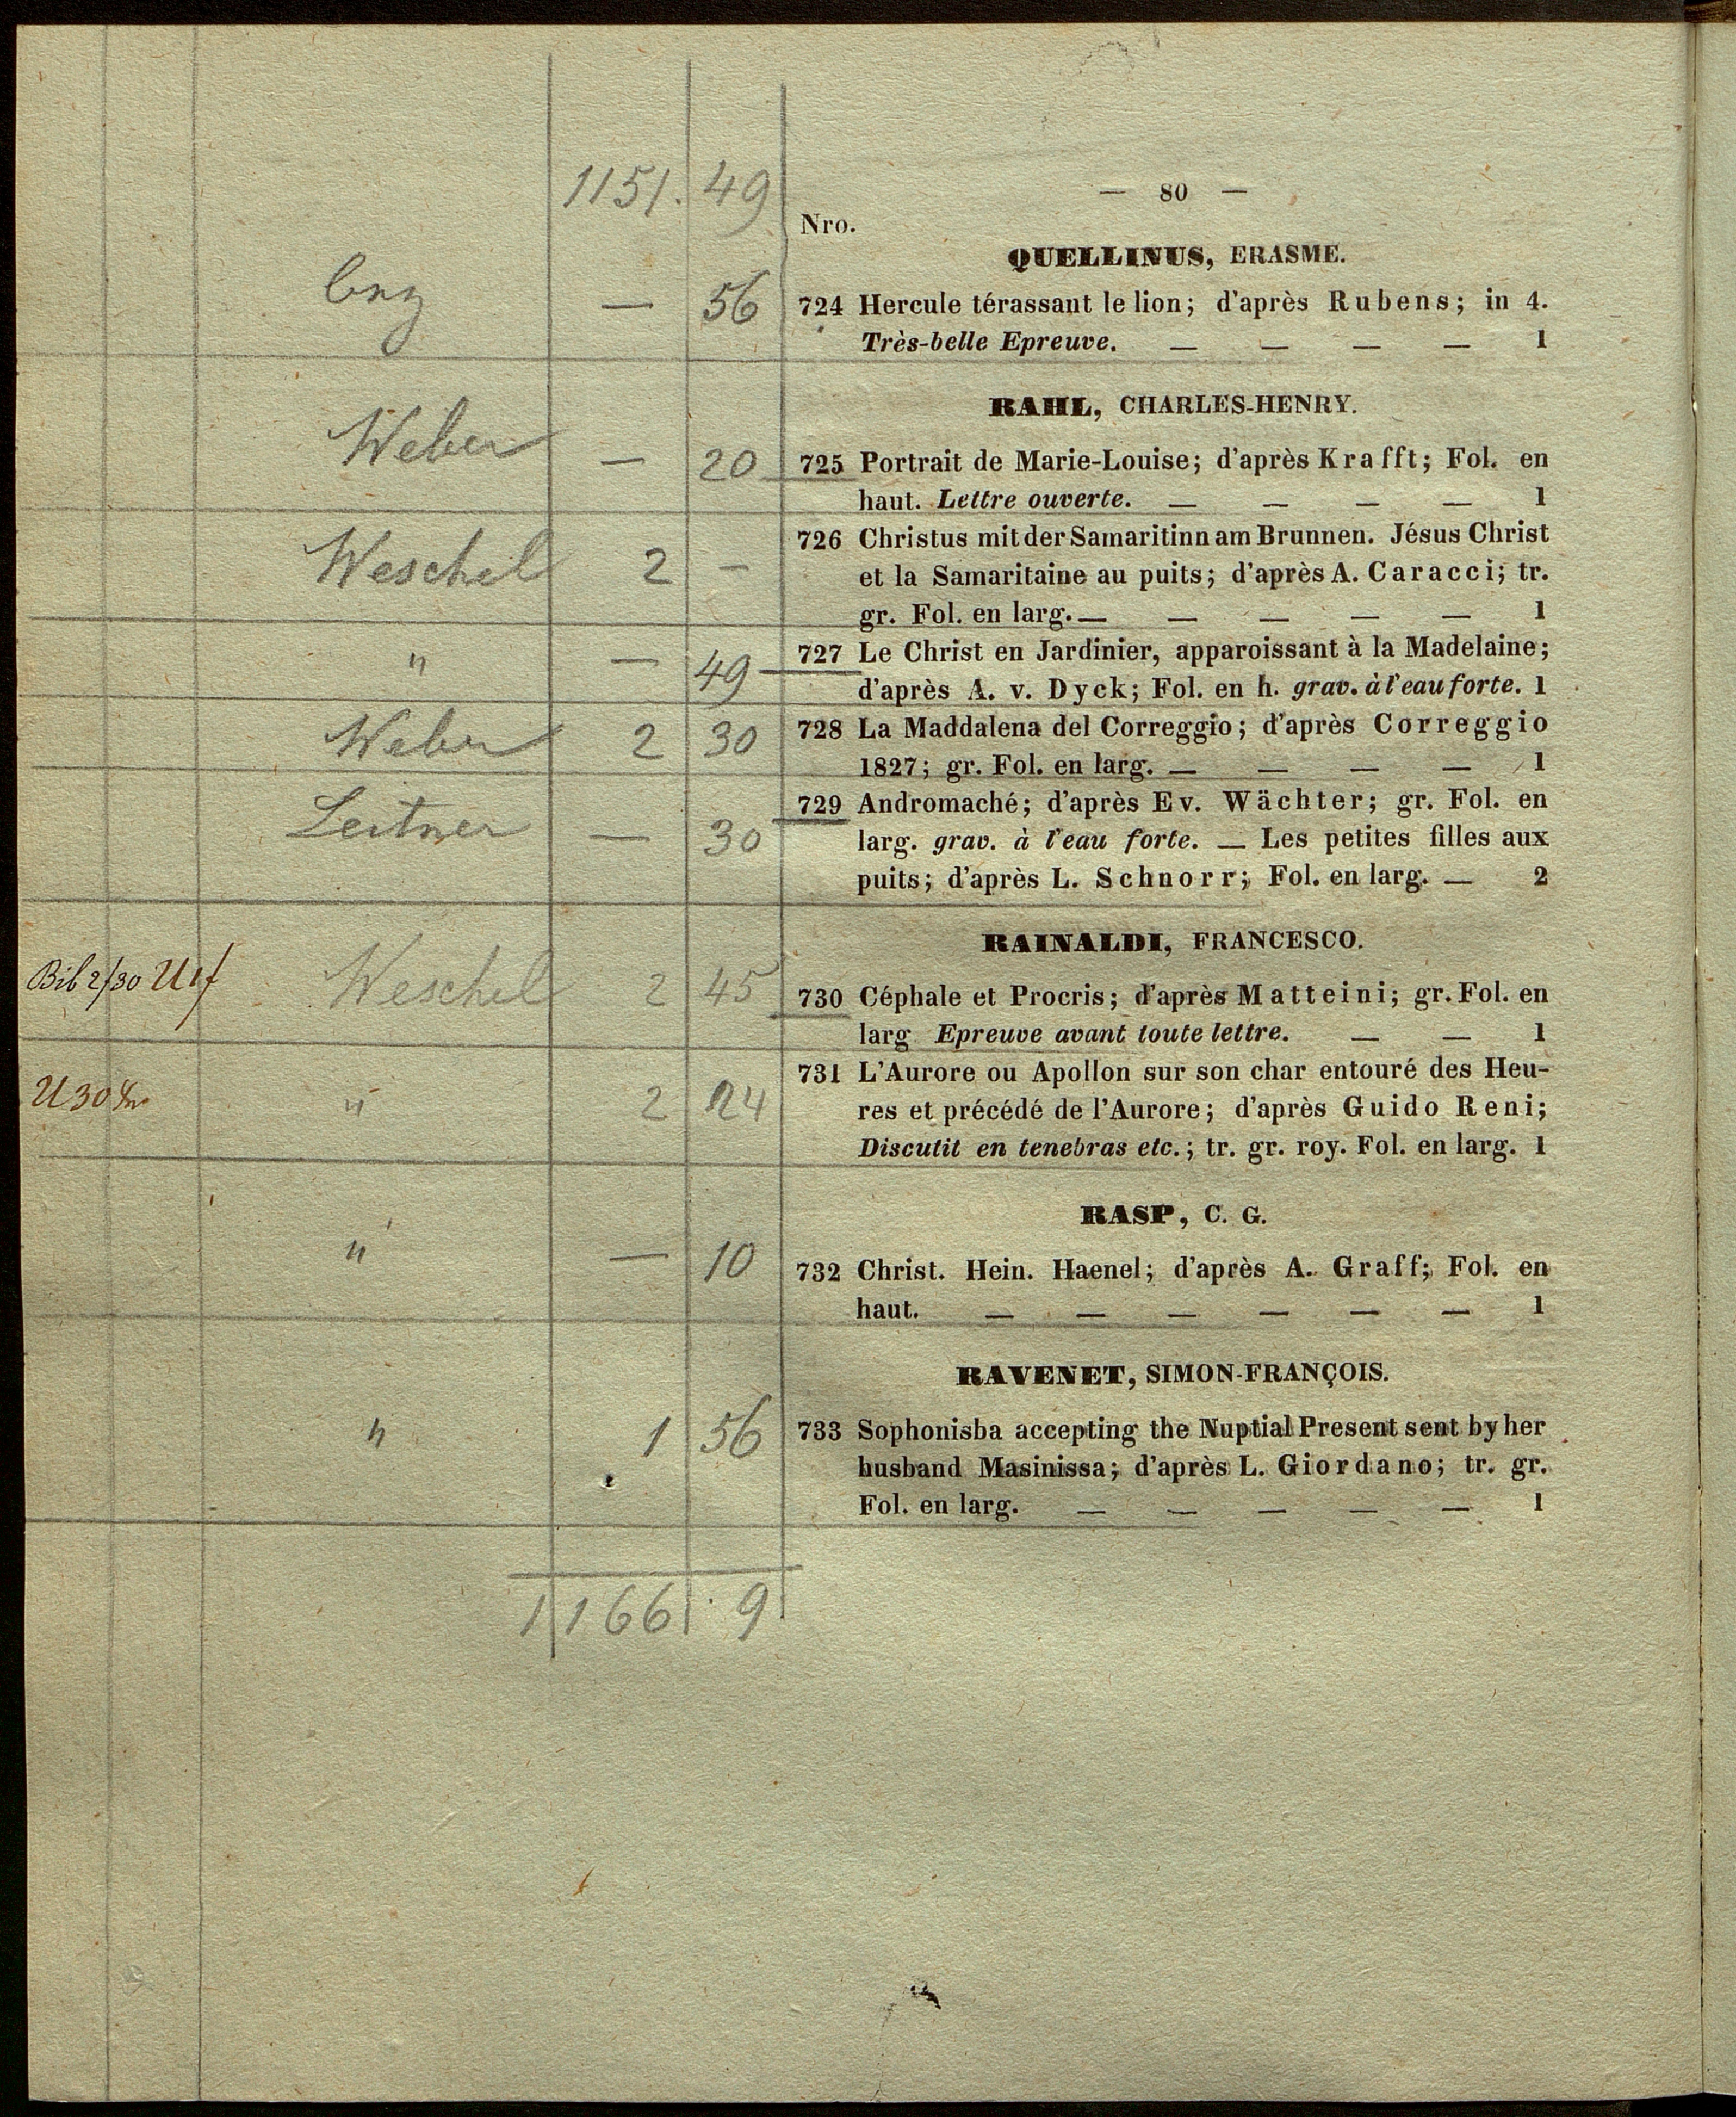 1151. 49
— 80 —
Nro.
QUELLINUS, ERASME.
— 56
724 Hercule térassant le lion; d'après Rubens; in 4.
Très-belle Epreuve. — — — — 1
RAHL, CHARLES-HENRY.
Weber — 20
725 Portrait de Marie-Louise; d'après Krafft; Fol. en
haut. Lettre ouverte. — — — — 1
Weschel 2 —
726 Christus mit der Samaritinn am Brunnen. Jésus Christ
et la Samaritaine au puits; d'après A. Caracci; tr.
gr. Fol. en larg. — — — — — 1
" — 49
727 Le Christ en Jardinier, apparoissant à la Madelaine;
d'après A. v. Dyck; Fol. en h. grav. à l'eau forte. 1
Weber 2 30
728 La Maddalena del Correggio; d'après Correggio
1827; gr. Fol. en larg. — — — — 1
Leitner — 30
729 Andromaché; d'après Ev. Wächter; gr. Fol. en
larg. grav. à l'eau forte. — Les petites filles aux
puits; d'après L. Schnorr; Fol. en larg. — 2
RAINALDI, FRANCESCO.
Bib 2/30 Weschel 2 45
730 Céphale et Procris; d'après Matteini; gr. Fol. en
larg Epreuve avant toute lettre. — — 1
U 30 " 2 24
731 L'Aurore ou Apollon sur son char entouré des Heu-
res et précédé de l'Aurore; d'après Guido Reni;
Discutit en tenebras etc.; tr. gr. roy. Fol. en larg. 1
RASP, C. G.
" — 10
732 Christ. Hein. Haenel; d'après A. Graff; Fol. en
haut. — — — — — — 1
RAVENET, SIMON-FRANÇOIS.
" 1 56
733 Sophonisba accepting the Nuptial Present sent by her
husband Masinissa; d'après L. Giordano; tr. gr.
Fol. en larg. — — — — — 1
1166. 9